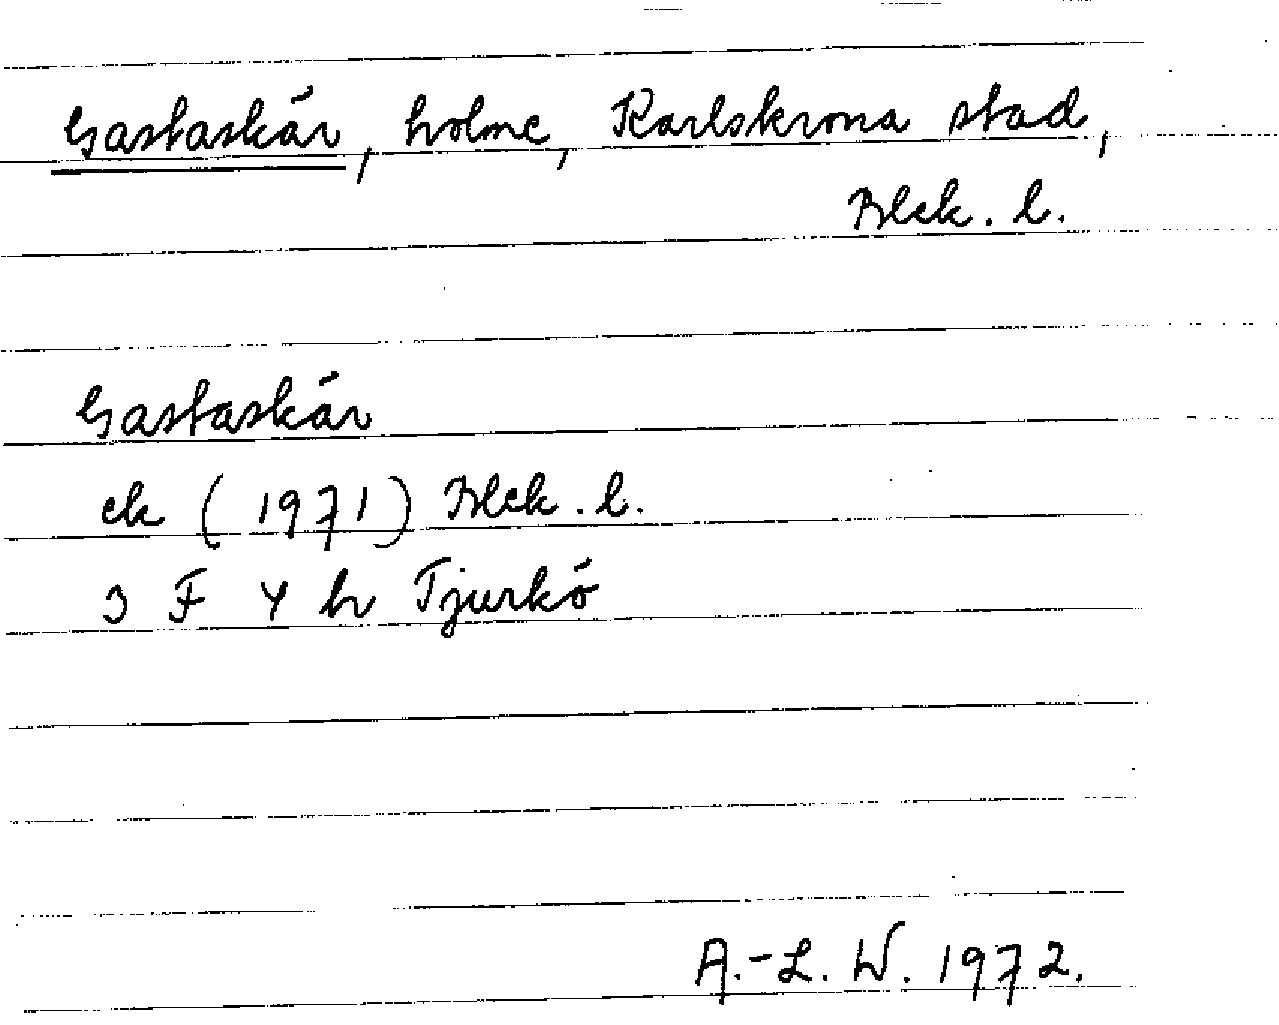 Gastaskär, holme, Karlskrona stad,
Blek. l.
Gastaskär
ek (1971) Blek. l.
3 F Y h Tjurkö
A.-L. W. 1972.